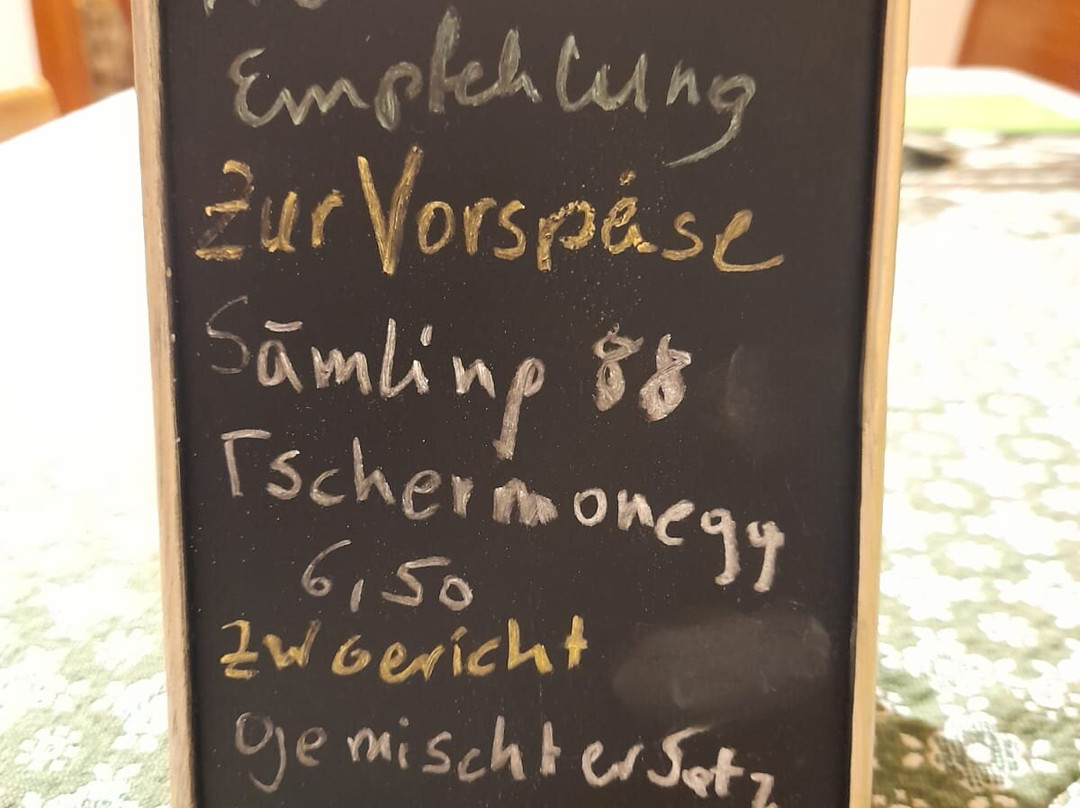 Empfehlung
Zur Vorspeise
Sämling 88
Tschermonegg
6,50
Zw Gericht
Gemischter Satz